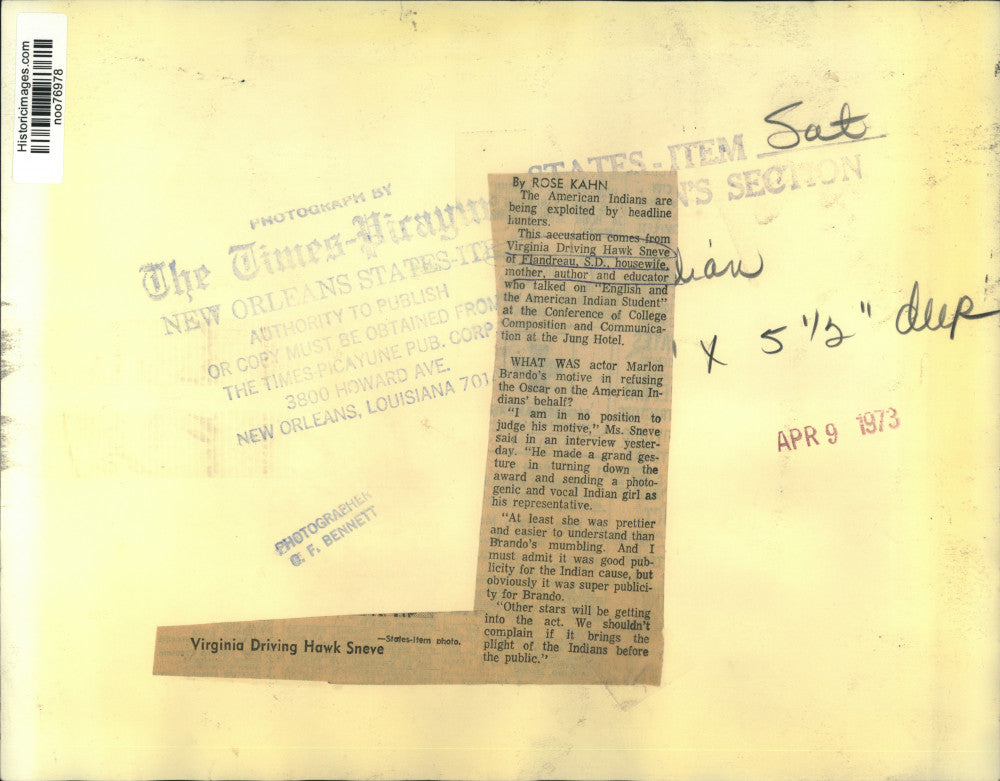 Historicimages.com
noo76978
STATES-ITEM Sat
N'S SECTION
PHOTOGRAPH BY
The Times-Picayune
NEW ORLEANS STATES-ITE
AUTHORITY TO PUBLISH
OR COPY MUST BE OBTAINED FROM
THE TIMES-PICAYUNE PUB. CORP
3800 HOWARD AVE.
NEW ORLEANS, LOUISIANA 701
PHOTOGRAPHER
G. F. BENNETT
dian
x 5 1/2" deep
APR 9 1973
By ROSE KAHN
The American Indians are
being exploited by headline
hunters.
This accusation comes from
Virginia Driving Hawk Sneve
of Flandreau, S.D., housewife,
mother, author and educator
who talked on "English and
the American Indian Student"
at the Conference of College
Composition and Communica-
tion at the Jung Hotel.
WHAT WAS actor Marlon
Brando's motive in refusing
the Oscar on the American In-
dians' behalf?
"I am in no position to
judge his motive," Ms. Sneve
said in an interview yester-
day. "He made a grand ges-
ture in turning down the
award and sending a photo-
genic and vocal Indian girl as
his representative.
"At least she was prettier
and easier to understand than
Brando's mumbling. And I
must admit it was good pub-
licity for the Indian cause, but
obviously it was super publici-
ty for Brando.
"Other stars will be getting
into the act. We shouldn't
complain if it brings the
plight of the Indians before
the public."
Virginia Driving Hawk Sneve
—States-Item photo.